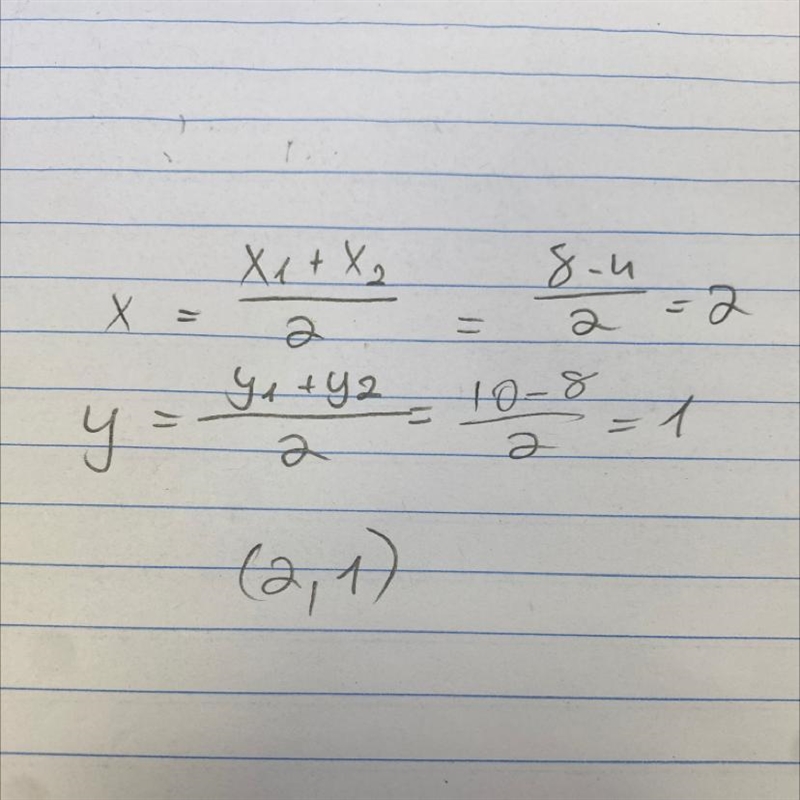 x = (x₁ + x₂)/2 = (8 - 4)/2 = 2
y = (y₁ + y₂)/2 = (10 - 8)/2 = 1
(2, 1)